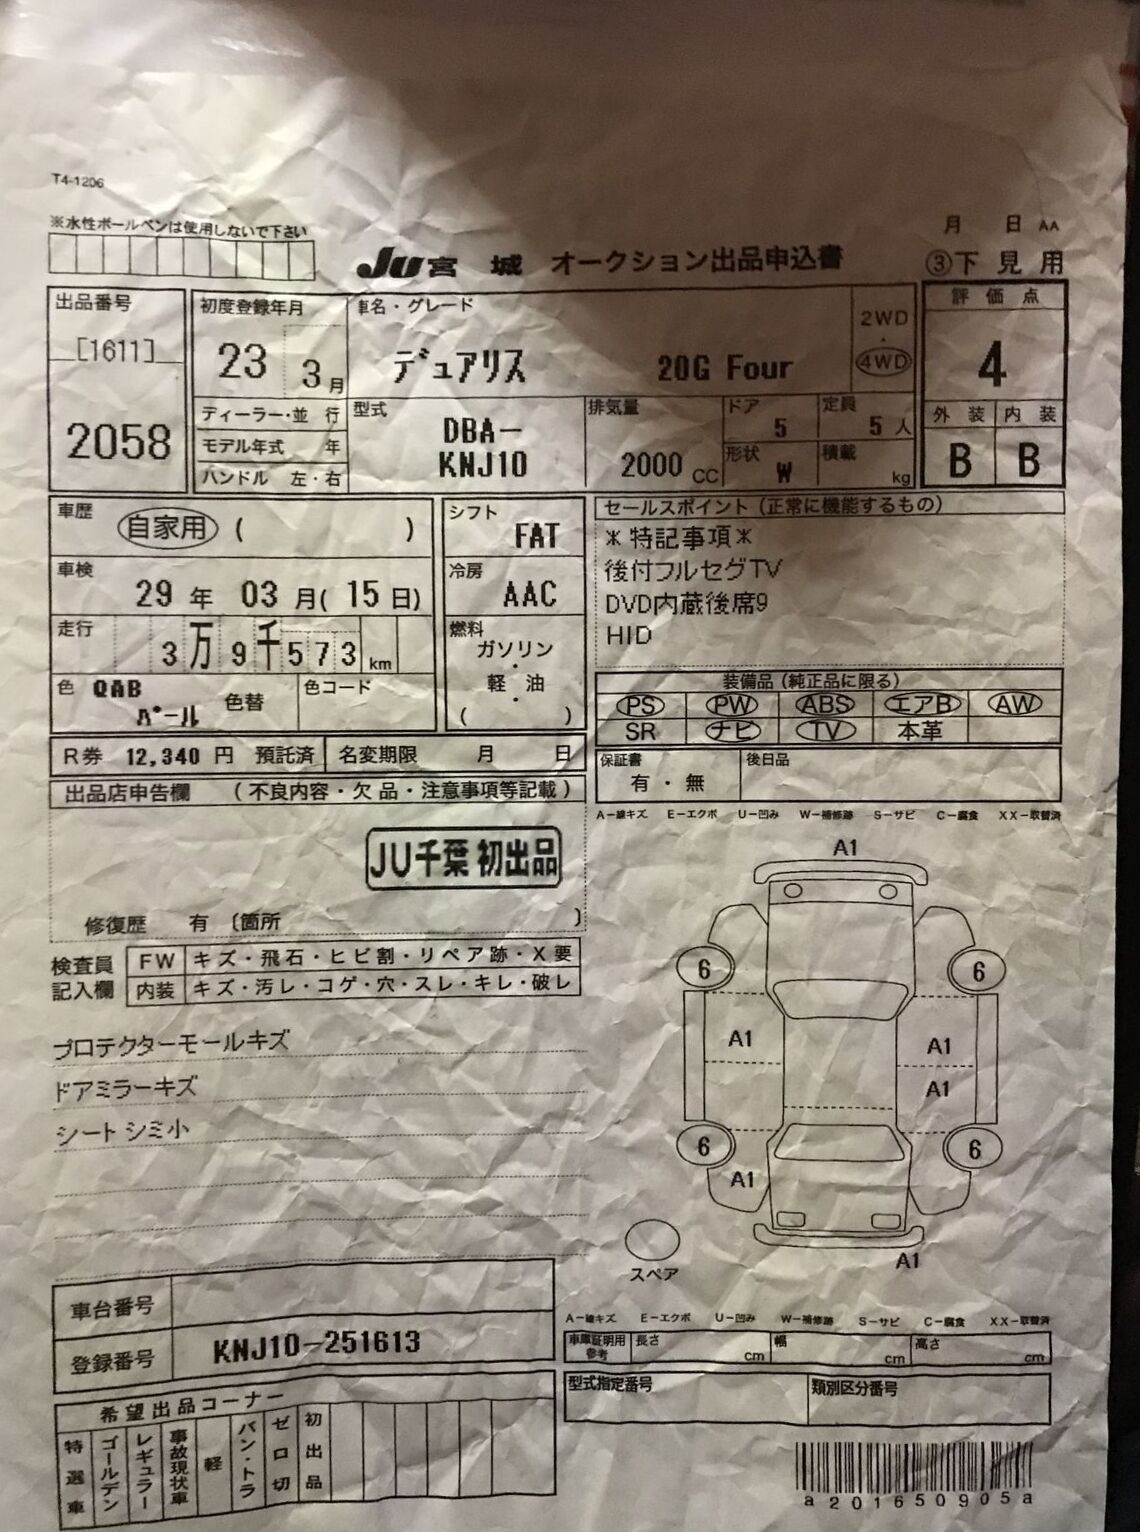 T4-1206
※水性ボールペンは使用しないで下さい
月 日 AA
JU宮城 オークション出品申込書
③下見用
出品番号
[1611]
2058
初度登録年月
23 3月
ディーラー・並行
モデル年式 年
ハンドル 左・右
車名・グレード
デュアリス 20G Four
2WD
・
4WD
型式
DBA-
KNJ10
排気量
2000 CC
ドア
5
定員
5人
形状
W
積載
kg
評価点
4
外装 内装
B B
車歴
自家用 ( )
車検
29年 03月(15日)
走行
3万9千573km
色 QAB
パール
色替
色コード
シフト
FAT
冷房
AAC
燃料
ガソリン
・
軽・油
( )
セールスポイント(正常に機能するもの)
*特記事項*
後付フルセグTV
DVD内蔵後席9
HID
装備品(純正品に限る)
PS PW ABS エアB AW
SR ナビ TV 本革
R券 12,340円 預託済 名変期限 月 日
保証書
有・無
後日品
出品店申告欄 (不良内容・欠品・注意事項等記載)
JU千葉 初出品
修復歴 有 〔箇所 〕
A-線キズ E-エクボ U-凹み W-補修跡 S-サビ C-腐食 XX-取替済
検査員
記入欄
FW キズ・飛石・ヒビ割・リペア跡・X要
内装 キズ・汚レ・コゲ・穴・スレ・キレ・破レ
プロテクターモールキズ
ドアミラーキズ
シート シミ小
A1
6 6
A1 A1
A1
6 6
A1
A1
スペア
車台番号
登録番号 KNJ10-251613
A-線キズ E-エクボ U-凹み W-補修跡 S-サビ C-腐食 XX-取替済
車庫証明用
参考
長さ cm 幅 cm 高さ cm
型式指定番号 類別区分番号
希望出品コーナー
特選車
ゴールデン
レギュラー
事故現状車
軽
バン・トラ
ゼロ切
初出品
a201650905a